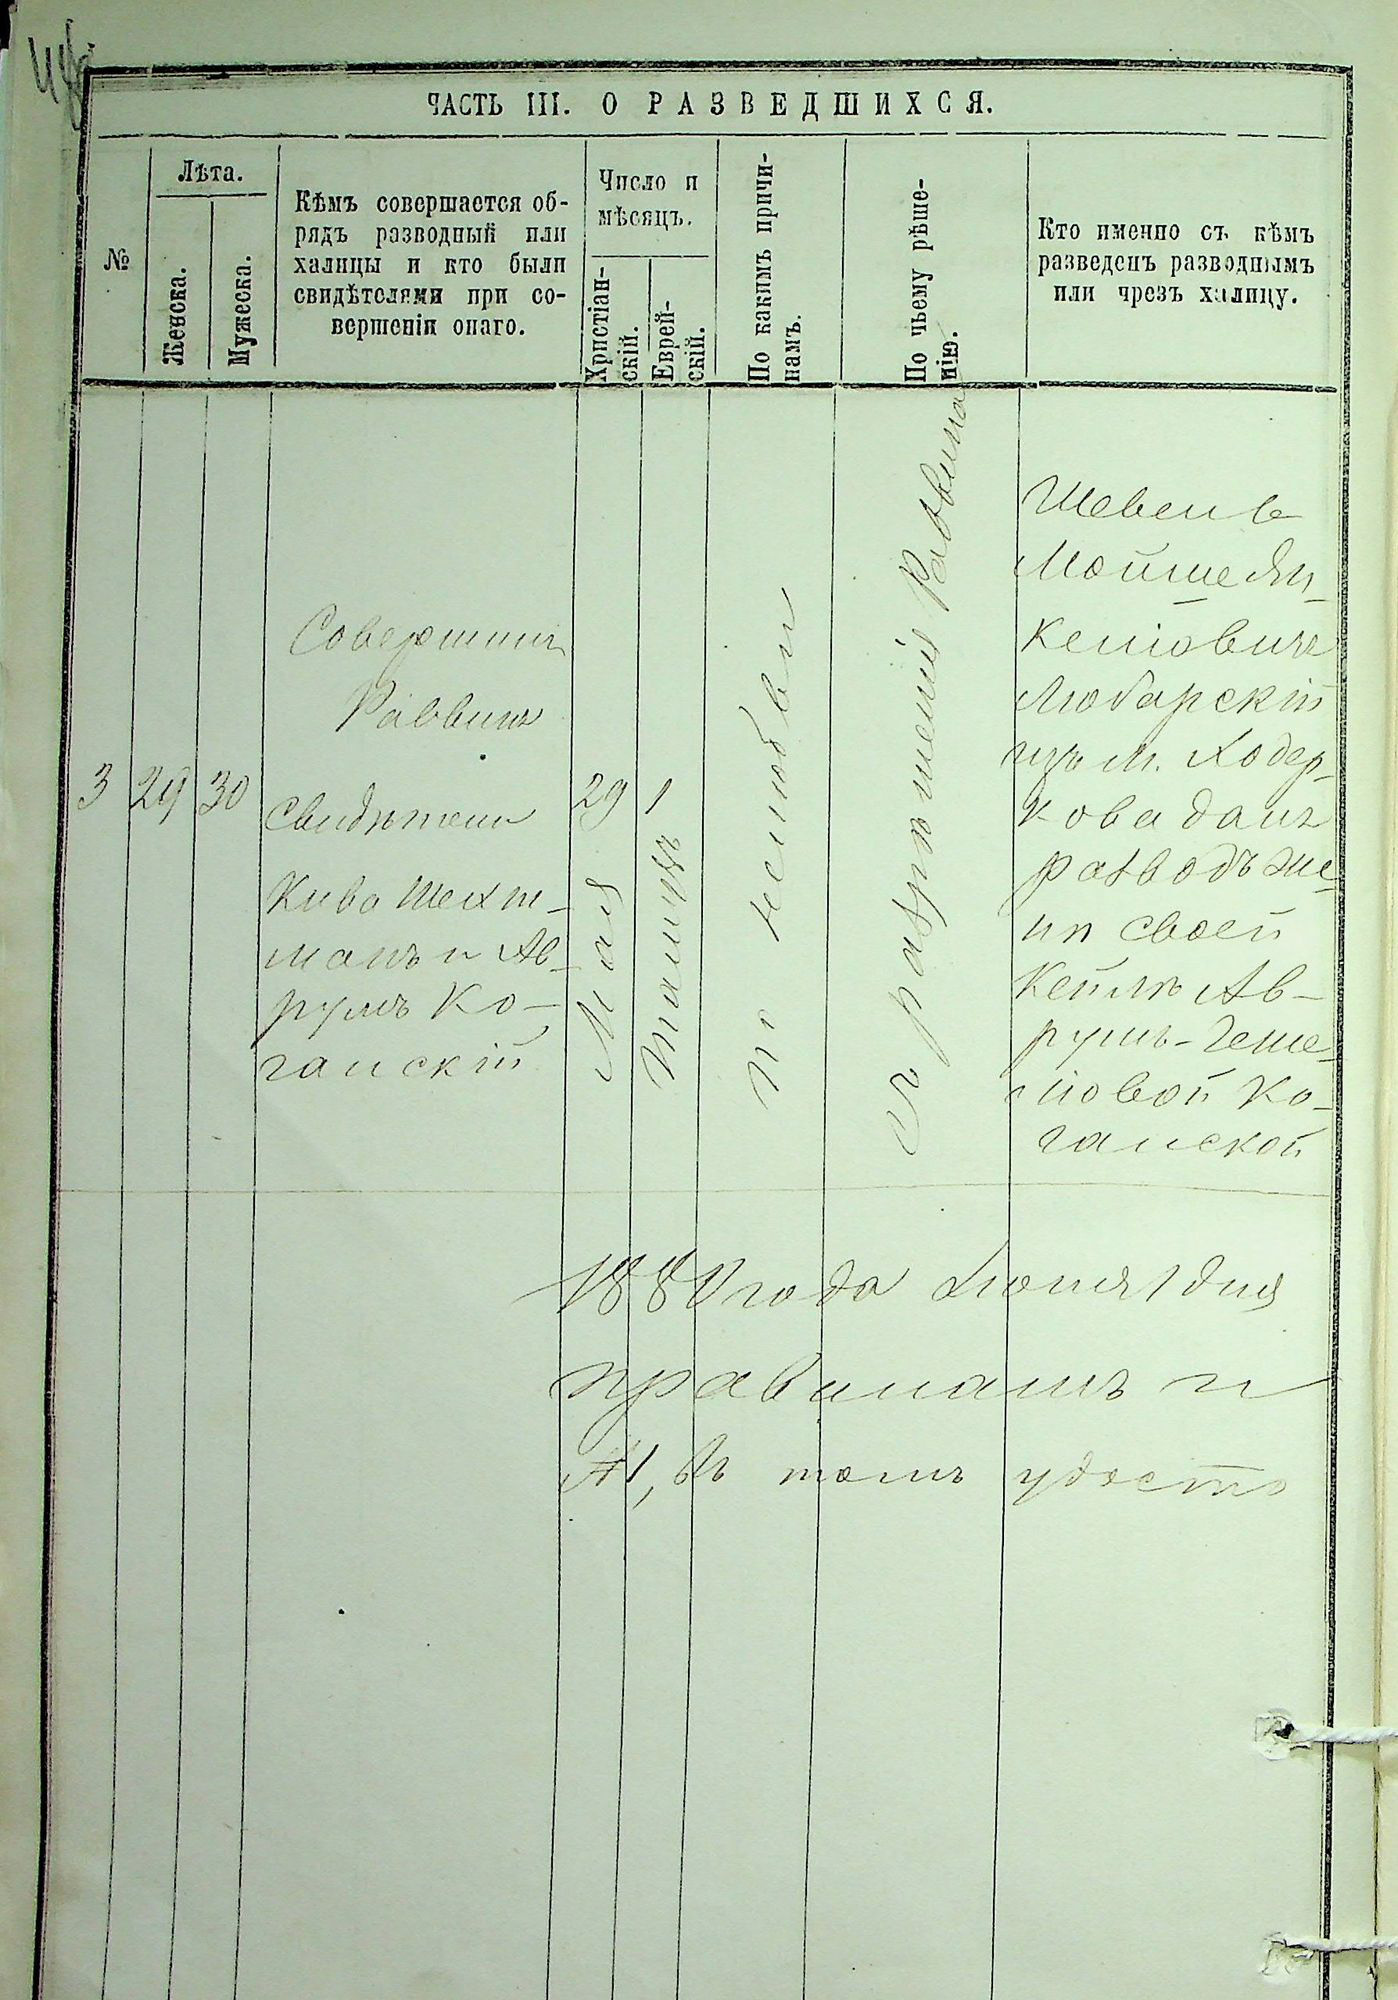 ЧАСТЬ III. О РАЗВЕДШИХСЯ.
№
Лѣта.
Женска.
Мужеска.
Кѣмъ совершается об-
рядъ разводный или
халицы и кто были
свидѣтелями при со-
вершеніи онаго.
Число и
мѣсяцъ.
Христіан-
скій.
Еврей-
скій.
По какимъ причи-
намъ.
По чьему рѣше-
нію.
Кто именно съ кѣмъ
разведенъ разводнымъ
или чрезъ халицу.
3
29
30
Совершилъ
Раввинъ
Свидѣтели
Кива Шехт-
манъ и Ав-
румъ Ко-
ганскій
29
Мая
1
Тамузъ
по нелюбви
съ разрѣшенія Раввина
Мойше Ян-
келіовичъ
Любарскій
изъ м. Ходер-
кова далъ
разводъ же-
нѣ своей
Кейлѣ Ав-
румъ-
Ко-
ганской
года Іюня 1 дня
правиламъ и
въ томъ удосто